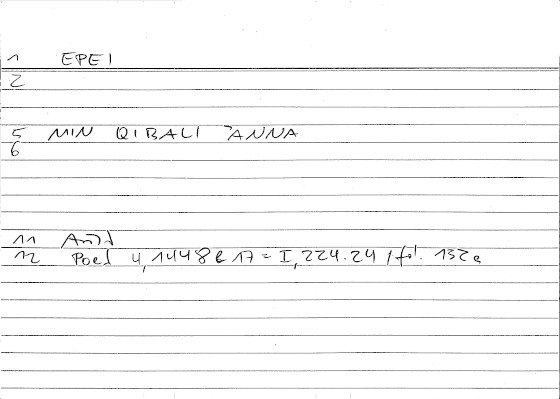 1 EPEI
2
5 MIN QIBALI ʾANNA
6
11
12 Poet 4, 1448 b 17 = I, 224.24 / fol. 132a